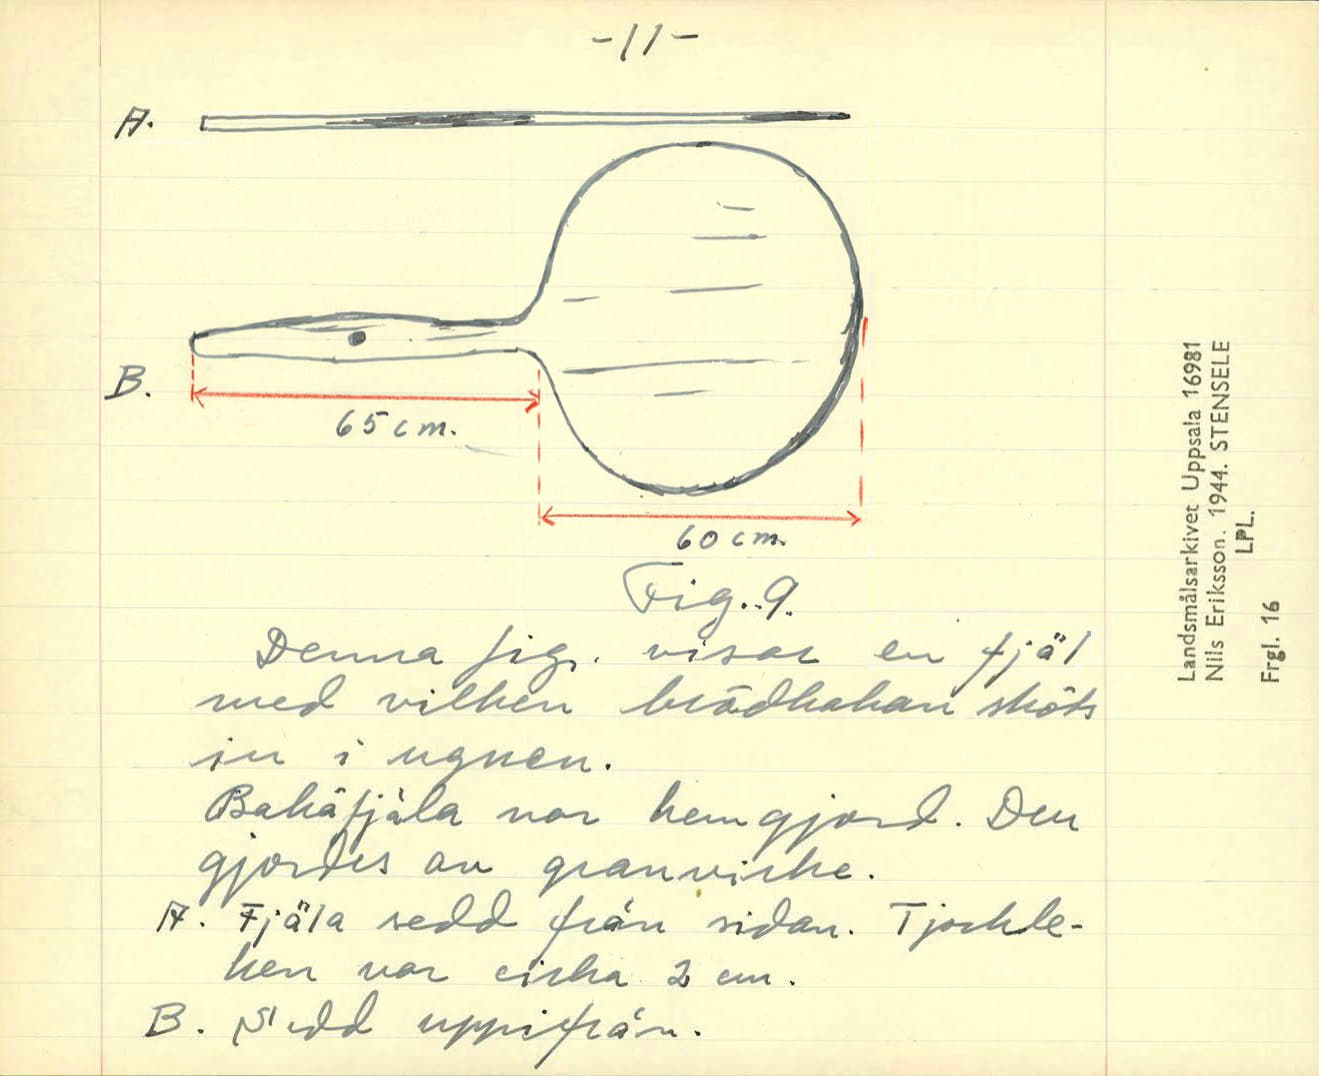 -11-
A.
B.
65 cm.
60 cm.
Fig. 9.
Denna fig. visar en fjäl
med vilken brödkakan sköts
in i ugnen.
Bakäfjäla var hemgjord. Den
gjordes av granvirke.
A. Fjäla sedd från sidan. Tjockle-
ken var cirka 2 cm.
B. Sedd uppifrån.
Landsmålsarkivet Uppsala 16981
Nils Eriksson. 1944. STENSELE
LPL.
Frgl. 16